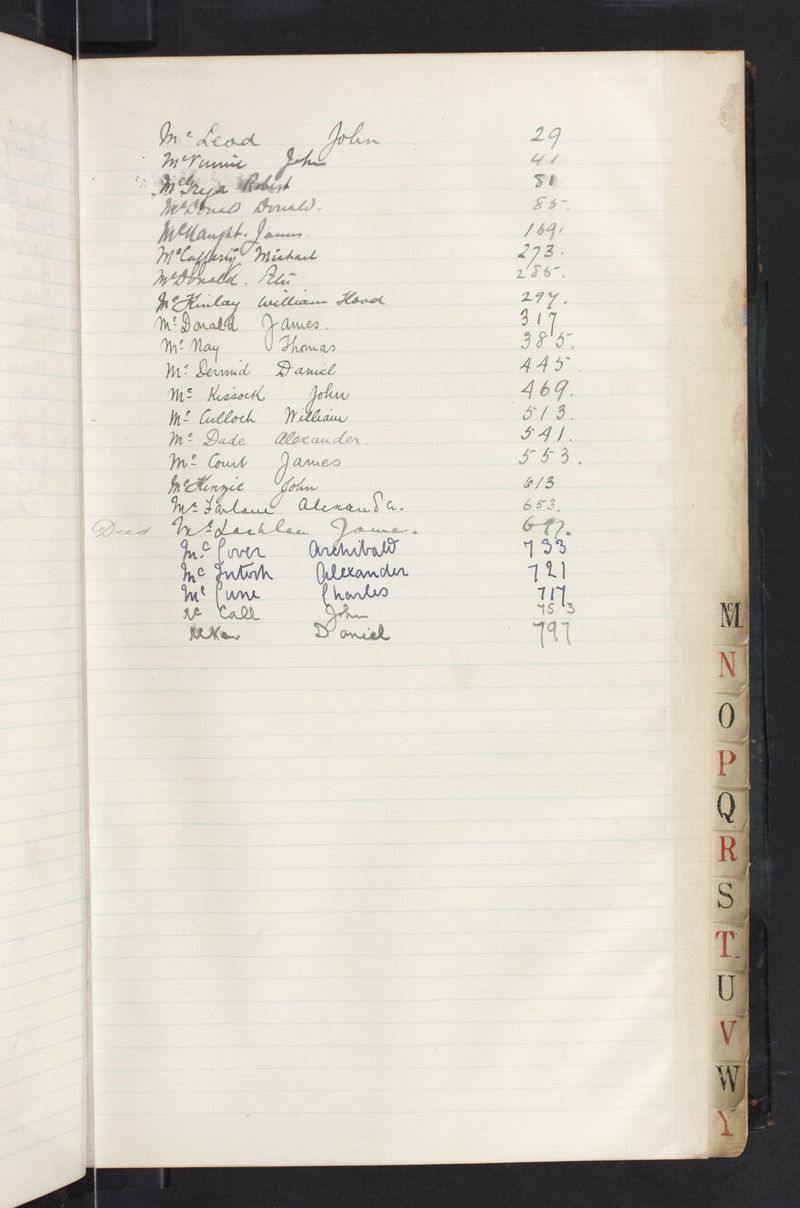 Mc Leod John 29
McVinnie John 41
McGregor Robert 81
McDonald Donald. 85.
McNaught. James. 169.
McCafferty Michael 273.
McDonald. Peter 285.
McKinlay William Hood 297.
Mc Donald James. 317
Mc Nay Thomas 385.
Mc Dermid Daniel 445.
Mc Kissock John 469.
Mc Culloch William 513.
Mc Dade Alexander. 541.
Mc Court James 553.
McKenzie John 613
Mc Farlane Alexander. 653.
Died Mc Lachlan James.
Mc Gover Archibald 733
Mc Intosh Alexander 721
Mc Cune Charles 717.
Mc Call John 753
Daniel 797
Mc
N
O
P
Q
R
S
T
U
V
W
Y